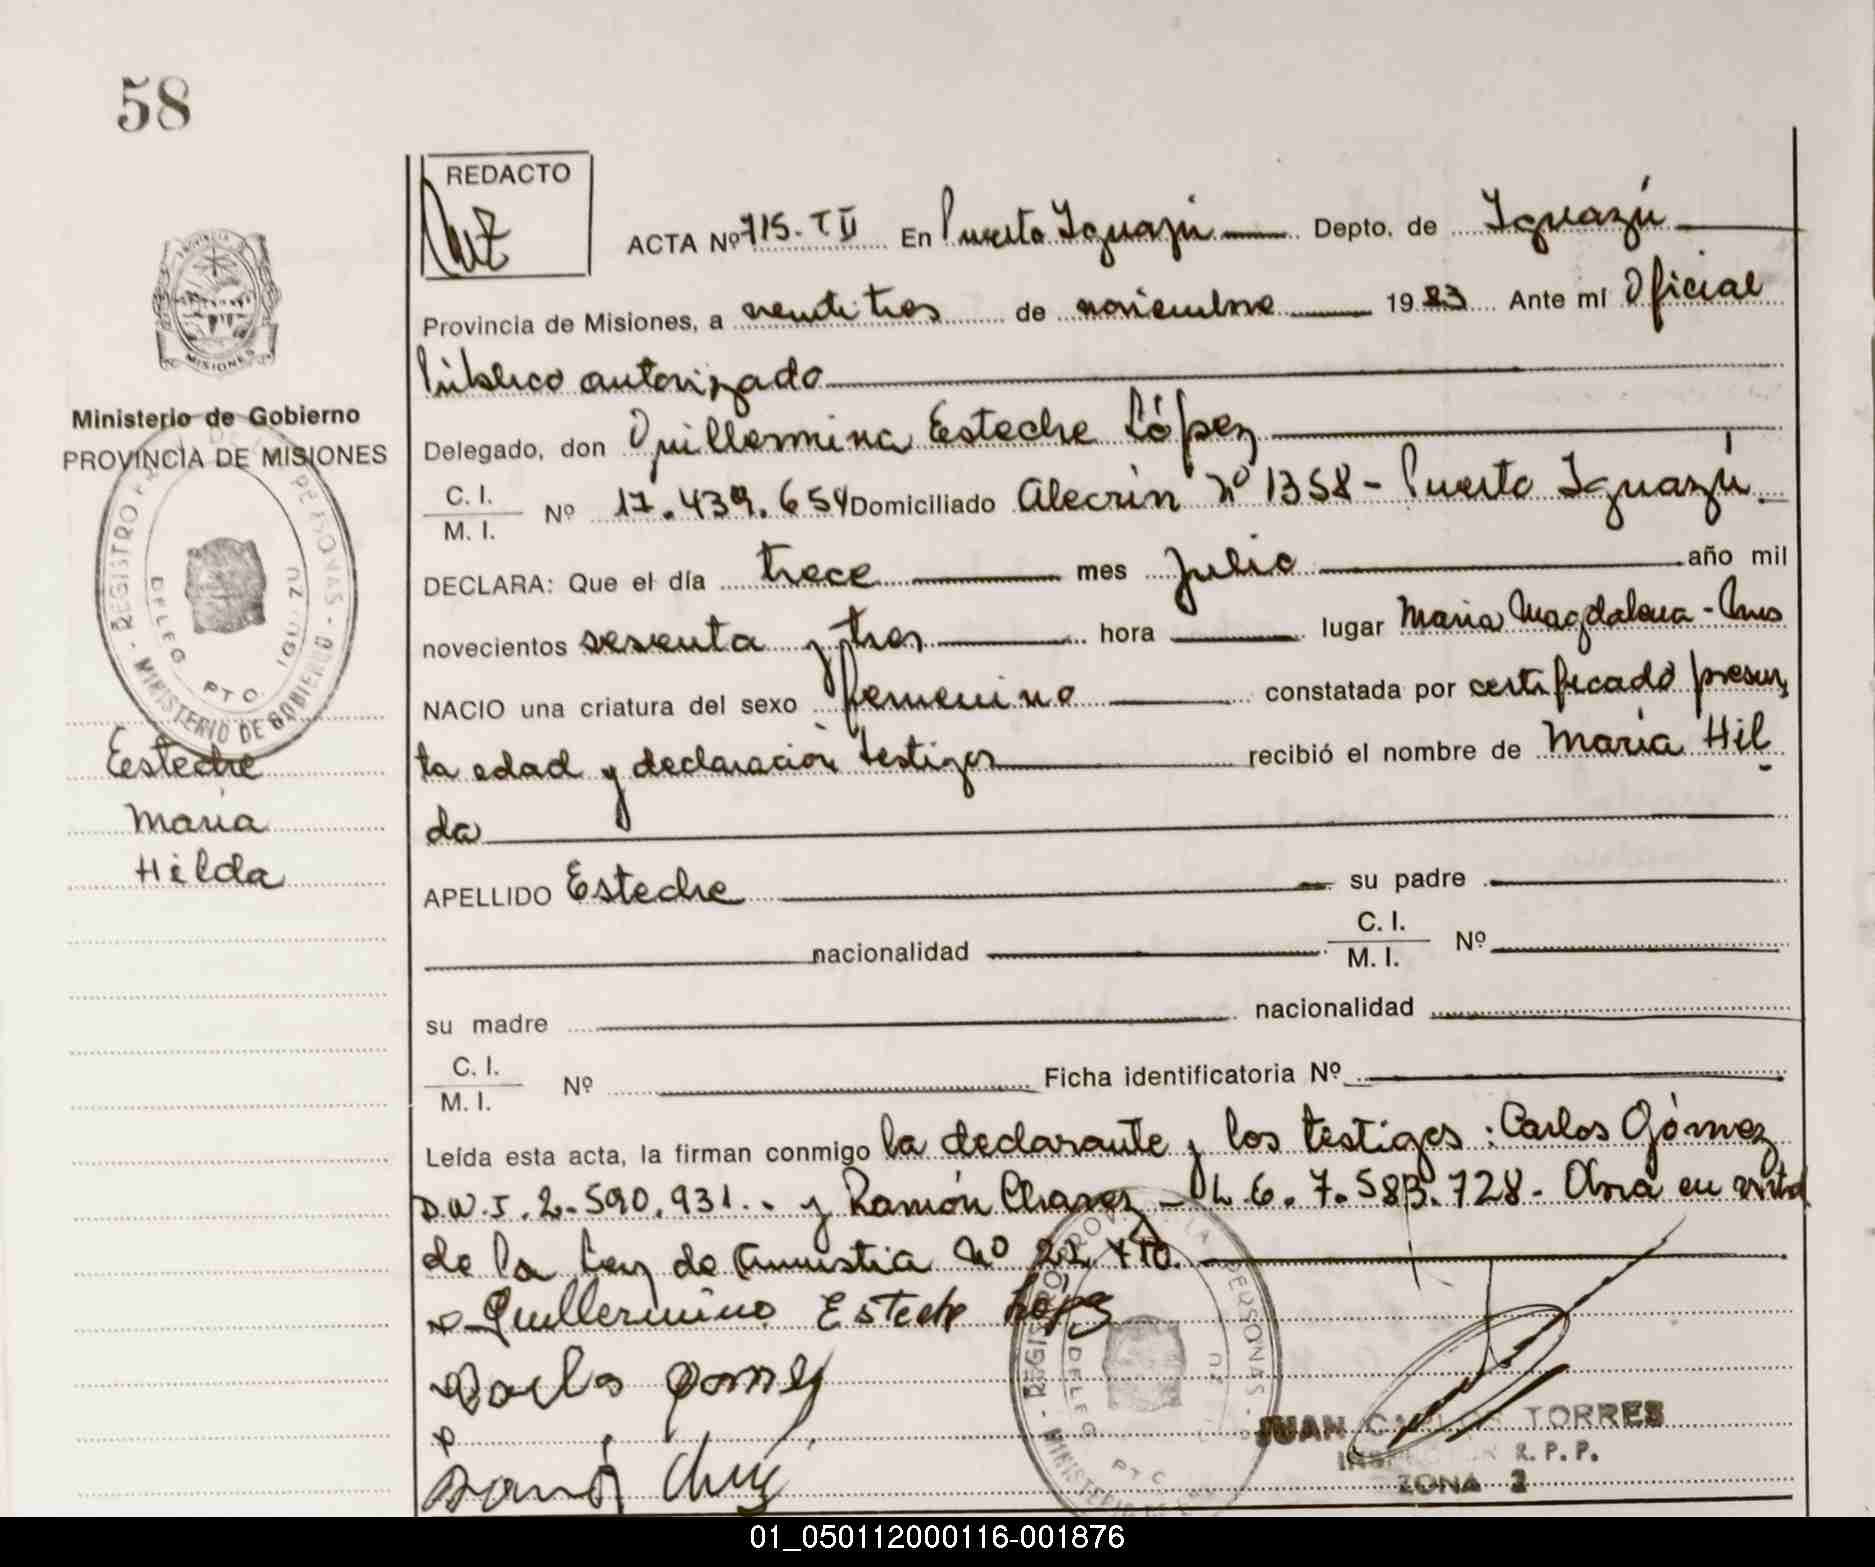 58
REDACTO
ACTA Nº 715. T II En Puerto Iguazú Depto. de Iguazú
Provincia de Misiones, a veintitres de noviembre 19 83 Ante mí Oficial
Público autorizado
Delegado, don Guillermina Esteche López
C. I.
M. I.
Nº 17.439.654 Domiciliado Alecrín nº 1358 - Puerto Iguazú
DECLARA: Que el día trece mes julio año mil
novecientos sesenta y tres hora lugar María Magdalena -
NACIO una criatura del sexo femenino constatada por certificado presun
ta edad y declaración testigos recibió el nombre de María Hil
da
APELLIDO Esteche su padre
nacionalidad
C. I.
M. I.
Nº
su madre nacionalidad
C. I.
M. I.
Nº Ficha identificatoria Nº
Leída esta acta, la firman conmigo la declarante y los testigos: Carlos Gómez
D.N.I. 2.590.931.- y Ramón Chavez - L.E. 7.583.728- Obra en virtud
de la Ley de Amnistia Nº
Guillermina Esteche López
Carlos Gomez
Ramón
JUAN CARLOS TORRES
INSPECTOR R.P.P.
ZONA 2
PROVINCIA DE MISIONES
Ministerio de Gobierno
PROVINCIA DE MISIONES
REGISTRO PERSONAS - MINISTERIO DE GOBIERNO
DELEG. PTO. IGUAZU
Esteche
María
Hilda
REGISTRO PROV. DE LAS PERSONAS - MINISTERIO
DELEG PTO
01_050112000116-001876